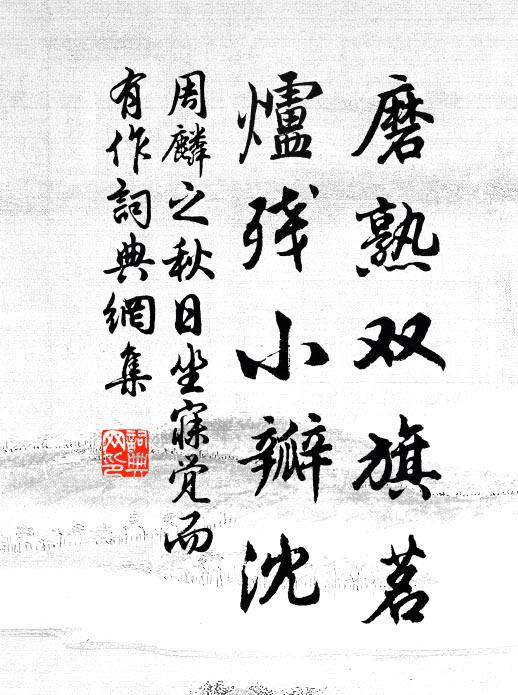 磨熟双旗茗
爐残小瓣沈
周麟之秋日坐寐觉而
有作詞典網集
詞典
网印